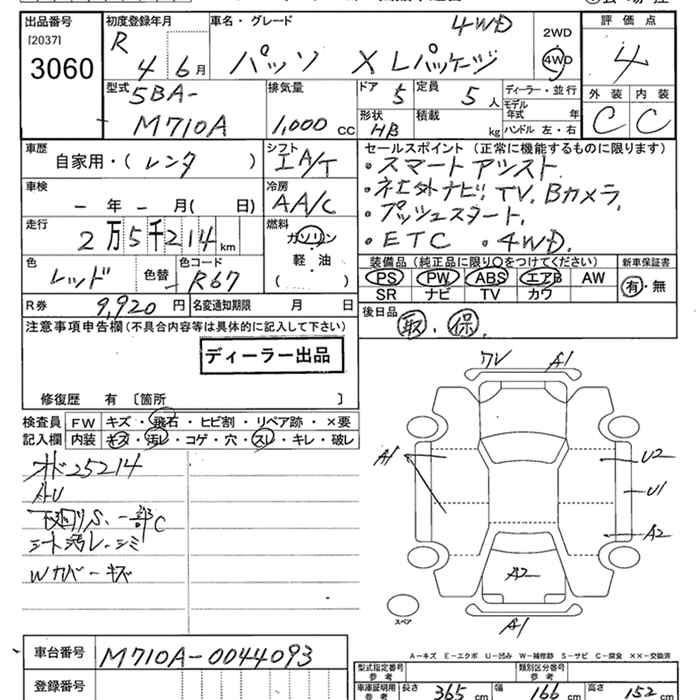 出品番号
[2037]
3060
初度登録年月
R 4 6月
車名・グレード 4WD
パッソ X Lパッケージ
2WD
4WD
評価点
4
外装 内装
C C
型式
5BA-
M710A
排気量
1,000 cc
ドア 5
定員 5 人
形状 HB
積載 kg
ディーラー・並行
モデル年式 年
ハンドル 左・右
車歴
自家用・( レンタ )
シフト
IA/T
車検
- 年 - 月( 日)
冷房
AA/C
走行
2万5千214km
燃料
ガソリン
軽・油
( )
色
レッド
色替
色コード
R67
R券 9,920 円
名変通知期限 月 日
セールスポイント(正常に機能するものに限ります)
・スマートアシスト
・社外ナビ、TV、Bカメラ、
・プッシュスタート、
・ETC ・4WD、
装備品(純正品に限り○をつけてください)
PS PW ABS エアB AW
SR ナビ TV カワ
新車保証書
有・無
後日品
取・保
注意事項申告欄(不具合内容等は具体的に記入して下さい)
ディーラー出品
修復歴 有 〔箇所 〕
検査員記入欄
FW キズ・飛石・ヒビ割・リペア跡・×要
内装 キズ・汚レ・コゲ・穴・スレ・キレ・破レ
オド25214
AU
下廻りS、一部C
シート汚レ・シミ
Wカバーキズ
A1
A1
U2
U1
A2
A2
A1
スペア
A-キズ E-エクボ U-凹み W-補修跡 S-サビ C-腐食 ××-交換済
車台番号 M710A-0044093
登録番号
型式指定番号 参考
類別区分番号 参考
車庫証明用 参考
長さ 365 cm
幅 166 cm
高さ 152 cm